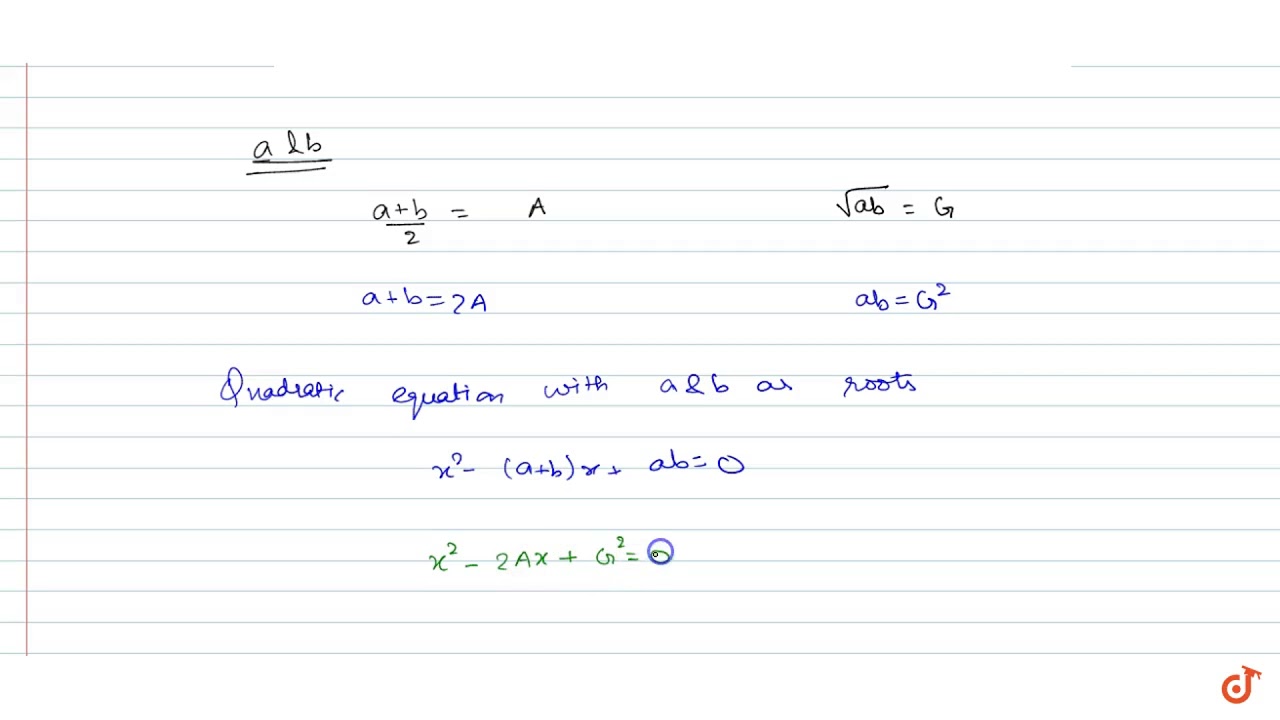 a & b
a+b/2 = A √ab = G
a+b=2A ab=G²
Quadratic equation with a & b as roots
x²- (a+b)x+ ab=0
x²-2Ax+G²=0